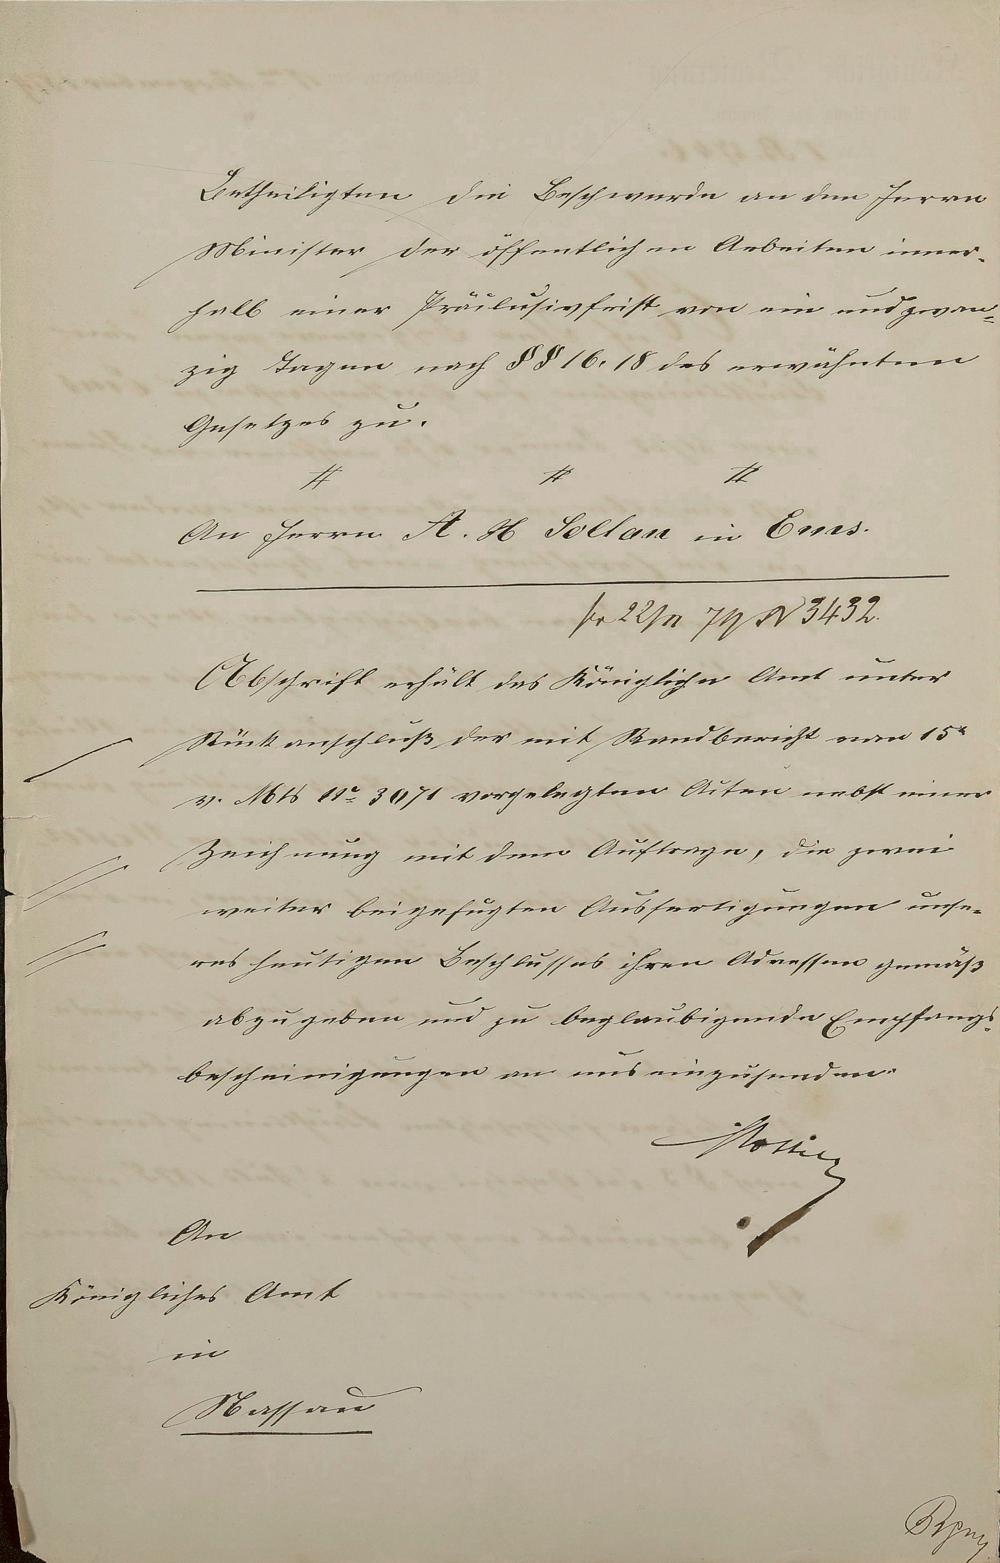 Betheiligten die Beschwerde an den Herrn
Minister der öffentlichen Arbeiten inner-
halb einer Präclusivfrist von ein und zwan-
zig Tagen nach §§ 16. 18 des erwähnten
Gesetzes zu.
An Herrn A. H Sollan in Ems.
pr 22/11 79 N 3432.
Abschrift erhält das Königliche Amt unter
Rückanschluß der mit Randbericht vom 15n
v. Mts No 3071 vorgelegten Acten nebst einer
Zeichnung mit dem Auftrage, die zwei
weiter beigefügten Ausfertigungen unse-
res heutigen Beschlusses ihren Adressen gemäß
abzugeben und zu beglaubigende Empfangs-
bescheinigungen an uns einzusenden.
An
Königliches Amt
in
Nassau